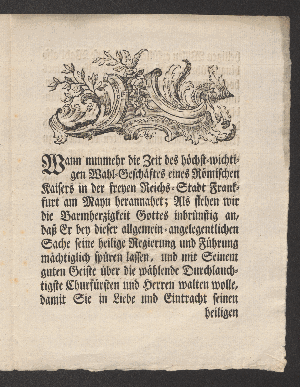 Wann nunmehr die Zeit des höchst-wichti-
gen Wahl-Geschäftes eines Römischen
Kaisers in der freyen Reichs-Stadt Frank-
furt am Mayn herannahet; Als flehen wir
die Barmherzigkeit Gottes inbrünstig an,
daß Er bey dieser allgemein-angelegentlichen
Sache seine heilige Regierung und Führung
mächtiglich spüren lassen, und mit Seinem
guten Geiste über die wählende Durchlauch-
tigste Churfürsten und Herren walten wolle,
damit Sie in Liebe und Eintracht seinen
heiligen